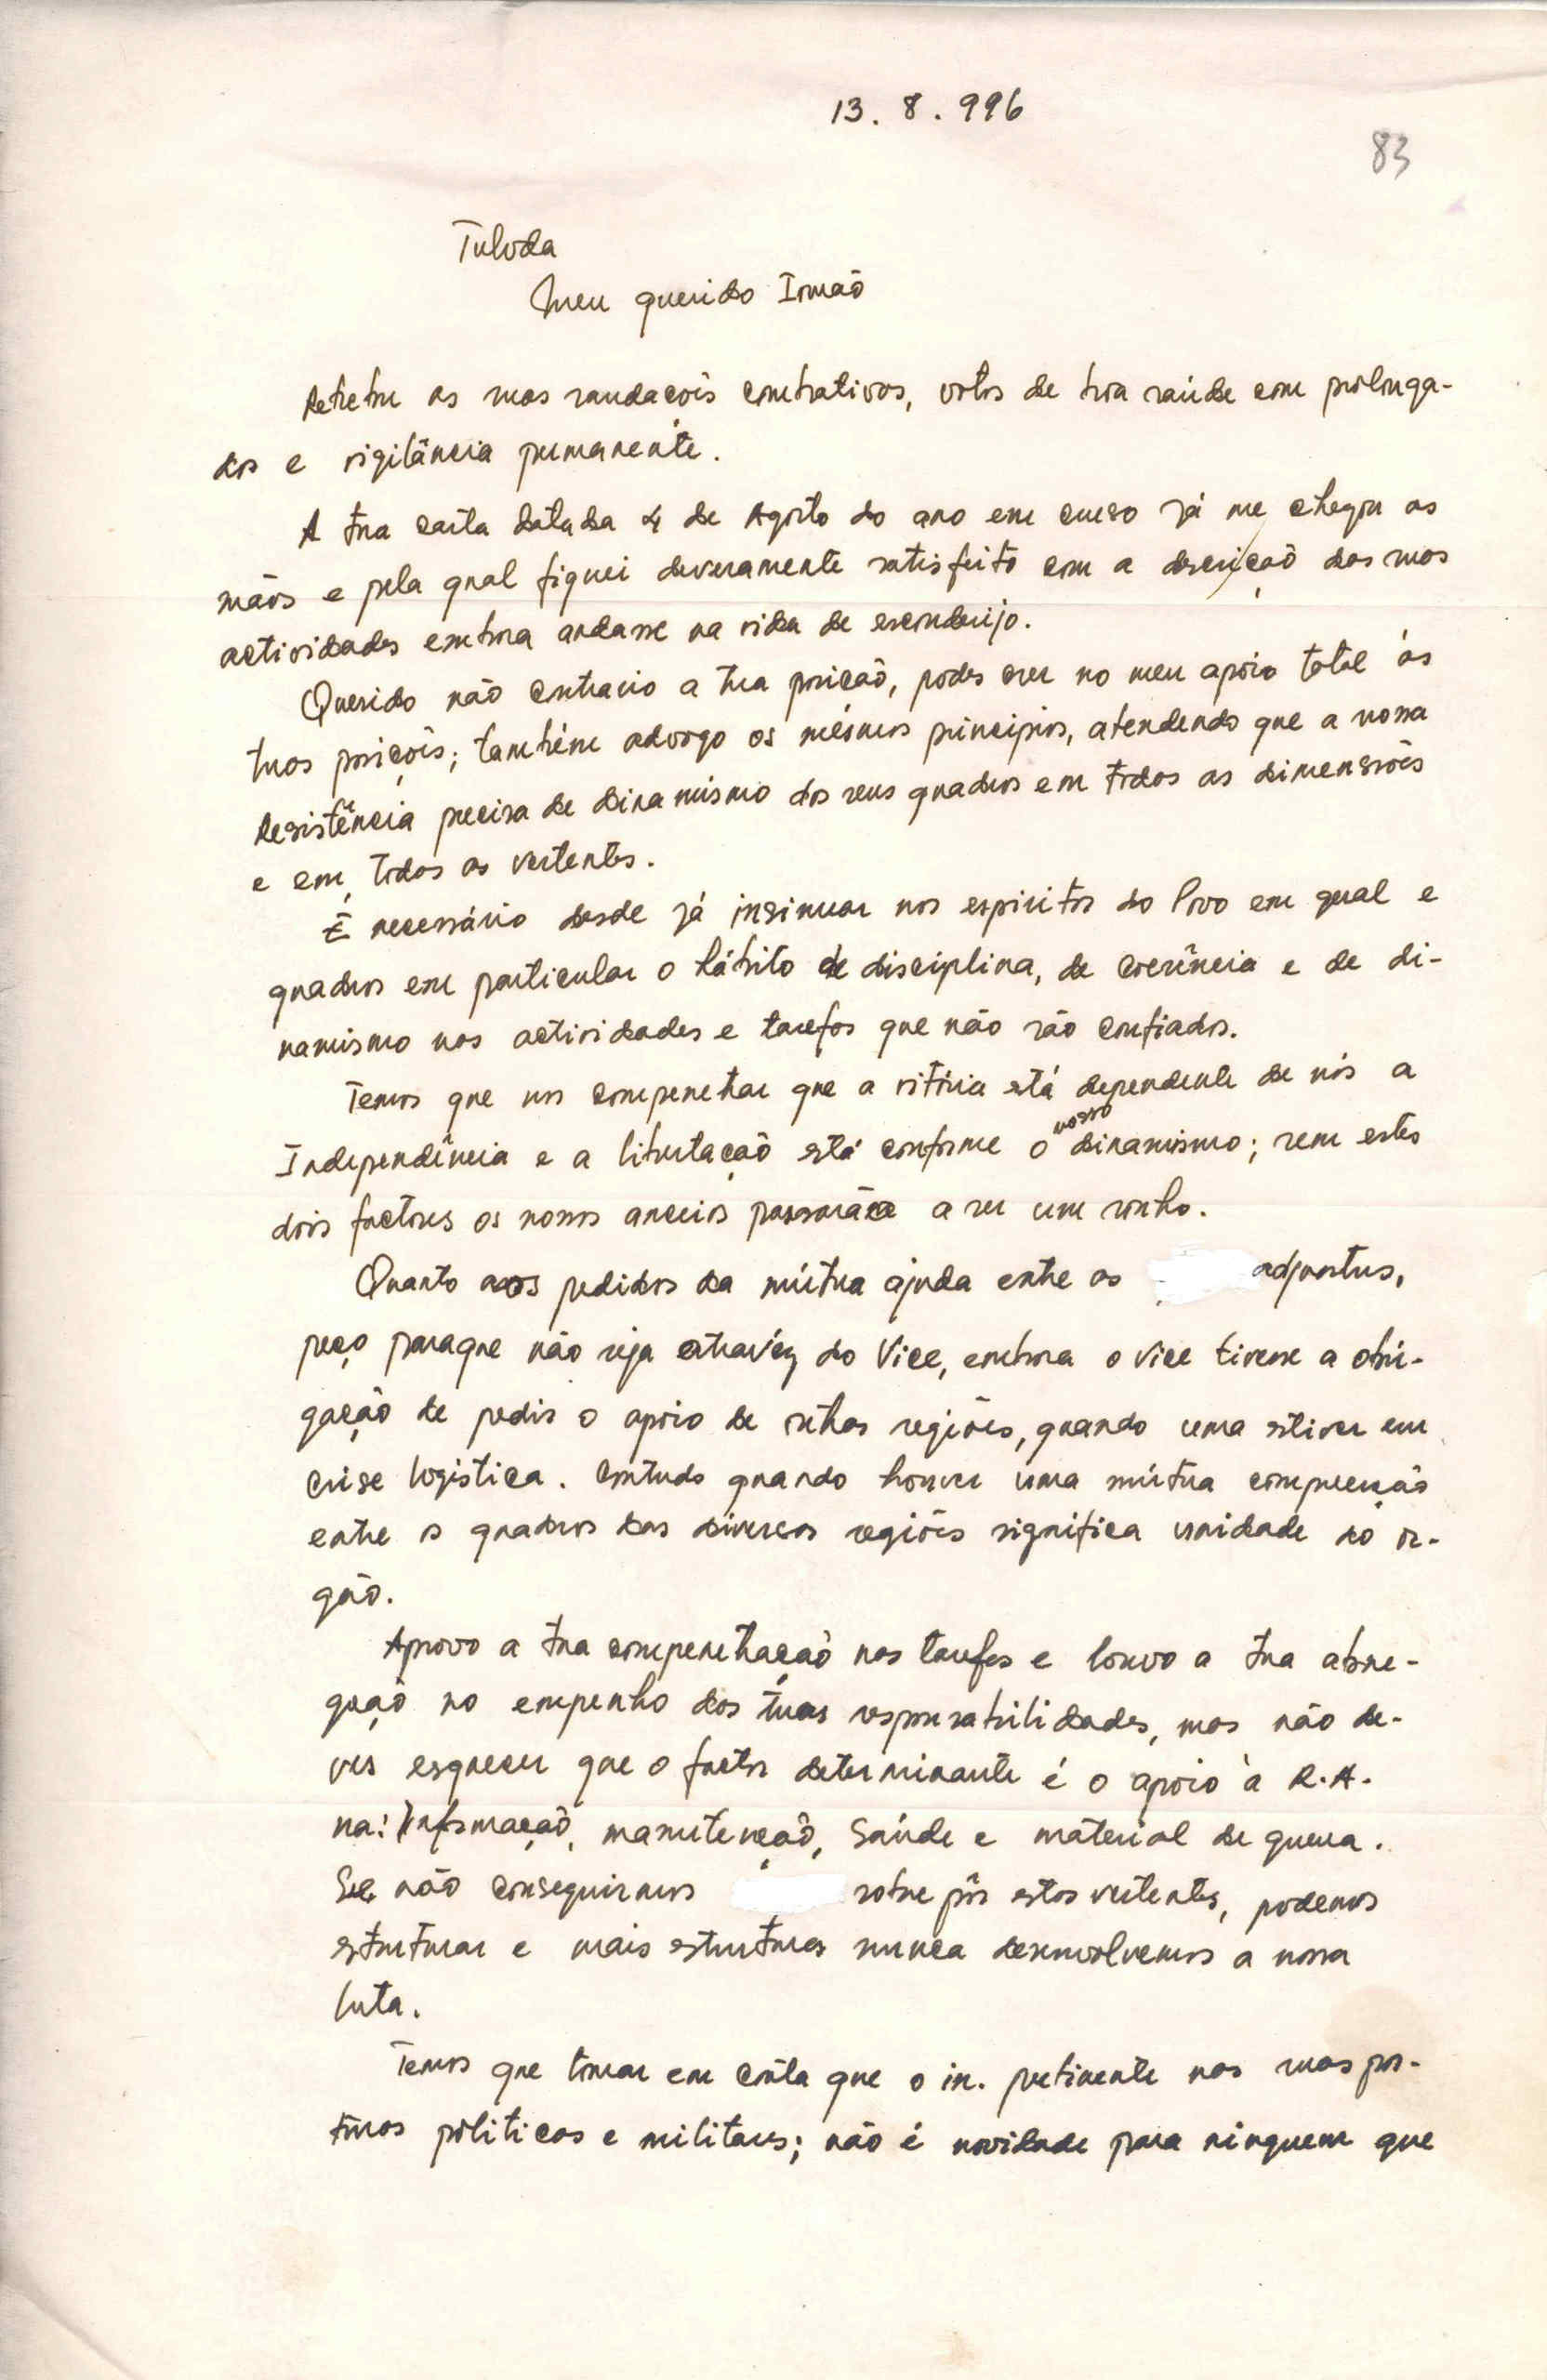 13.8.996
83
Tuloda
Meu querido Irmão
Retribu as suas saudaçois combativas, votos de boa saúde com prolonga-
dos e vigilância permanente.
A tua carta datada 4 de Agosto do ano em curso já me chegou as
mãos e pela qual fiquei deveramente satisfeito com a descrição das suas
actividades embora andasse na vida de esconderijo.
Querido não contrario a tua posição, podes crer no meu apoio total ás
tuas posiçois; também advogo os mesmos principios, atendendo que a nossa
Resistência precisa de dinamismo dos seus quadros em todas as dimensiões
e em todas as vertentes.
É necessário desde já insinuar nos espiritos do Povo em geral e
quadros em particular o hábito de disciplina, de coerência e de di-
namismo nas actividades e tarefas que não são confiados.
Temos que nos compenetrar que a vitória está dependente de nós a
Independência e a libertação está conforme o nosso dinamismo; sem estes
dois factores os nossos anceios passarão a ser um sonho.
Quanto aos pedidos da mútua ajuda entre os adjuntus,
peço paraque não seja através do Vice, embora o vice tivesse a obri-
gação de pedir o apoio de outras regiões, quando uma estiver em
crise logistica. Contudo quando houver uma mútua compreenção
entre os quadros das diversas regiões significa unidade do or-
gão.
Aprovo a tua compenetração nas tarefas e louvo a tua abne-
gação no empenho das tuas responsabilidades, mas não de-
ves esquecer que o factor determinante é o apoio à R.A.
na: Informação, manutenção, Saúde e material de guerra.
Se não conseguirmos sobre pôr estas vertentes, podemos
estruturar e mais estruturas nunca desenvolvemos a nossa
luta.
Temos que tomar em conta que o in. pertinente nas suas pos-
turas politicas e militares; não é novidade para ninguem que